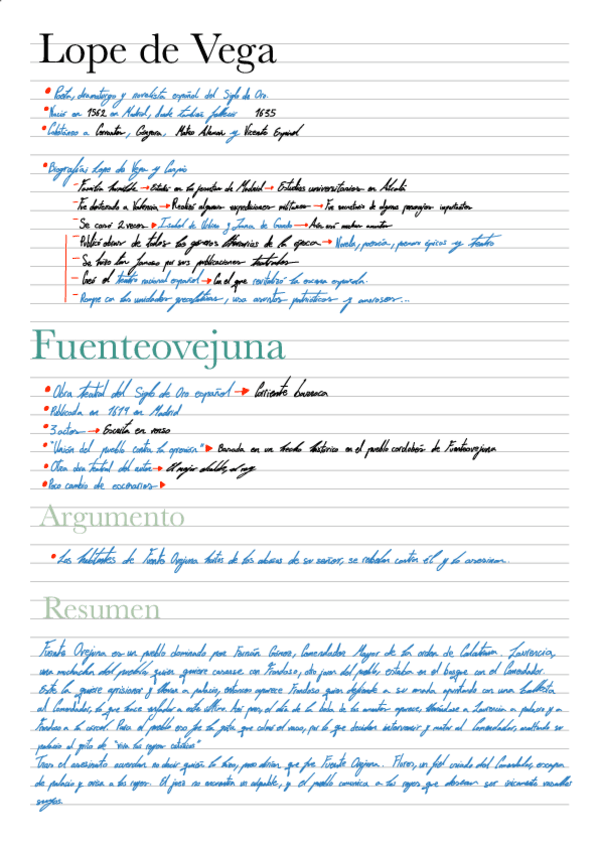 Lope de Vega
Poeta, dramaturgo y novelista español del Siglo de Oro.
Nació en 1562 en Madrid, donde también falleció 1635
Coetáneo a Cervantes, Góngora, Mateo Alemán y Vicente Espinel
Biografías Lope de Vega y Carpio
- Familia humilde → Estudió en los jesuitas de Madrid → Estudios universitarios en Alcalá
- Fue desterrado a Valencia → Realizó algunas expediciones militares → Fue secretario de algunos personajes importantes
- Se casó 2 veces → Isabel de Urbina y Juana de Guardo → Aún así muchas amantes
- Publicó obras de todos los géneros literarios de la época → Novela, poesía, poemas épicos y teatro
- Se hizo tan famoso por sus publicaciones teatrales
- Creó el teatro nacional español → Con el que revitalizó la escena española.
- Rompe con las unidades grecolatinas, usa asuntos patrióticos y amorosos...
Fuenteovejuna
Obra teatral del Siglo de Oro español → Corriente barroca
Publicada en 1619 en Madrid
3 actos → Escrita en verso
"Unión del pueblo contra la opresión" → Basada en un hecho histórico en el pueblo cordobés de Fuenteovejuna
Otra obra teatral del autor → El mejor alcalde, el rey
Poco cambio de escenarios
Argumento
Los habitantes de Fuente Ovejuna hartos de los abusos de su señor, se rebelan contra él y lo asesinan.
Resumen
Fuente Ovejuna es un pueblo dominado por Fernán Gómez, Comendador Mayor de la orden de Calatrava. Laurencia,
una muchacha del pueblo quien quiere casarse con Frondoso, otro joven del pueblo, estaba en el bosque con el Comendador.
Este la quiere aprisionar y llevar a palacio, entonces aparece Frondoso quien defiende a su amada apuntando con una ballesta
al Comendador, lo que hace enfadar a este último. Así pues, el día de la boda de los amantes aparece, llevándose a Laurencia a palacio y a
Frondoso a la cárcel. Para el pueblo eso fue la gota que colmó el vaso, por lo que deciden intervenir y matar al Comendador, asaltando su
palacio al grito de "vivan los reyes católicos"
Tras el asesinato acuerdan no decir quién lo hizo, pero dirían que fue Fuente Ovejuna. Flores, un fiel criado del Comendador, escapa
de palacio y avisa a los reyes. El juez no encuentra un culpable, y el pueblo comunica a los reyes que desean ser únicamente vasallos
suyos.